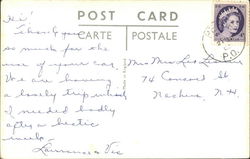 POST CARD
CARTE POSTALE
Hi!
Thank you
so much for the
use of your car.
We are having
a lovely trip which
I needed badly
after a hectic
Mr & Mrs
74 Concord St
Nashua, N.H.
P.O.